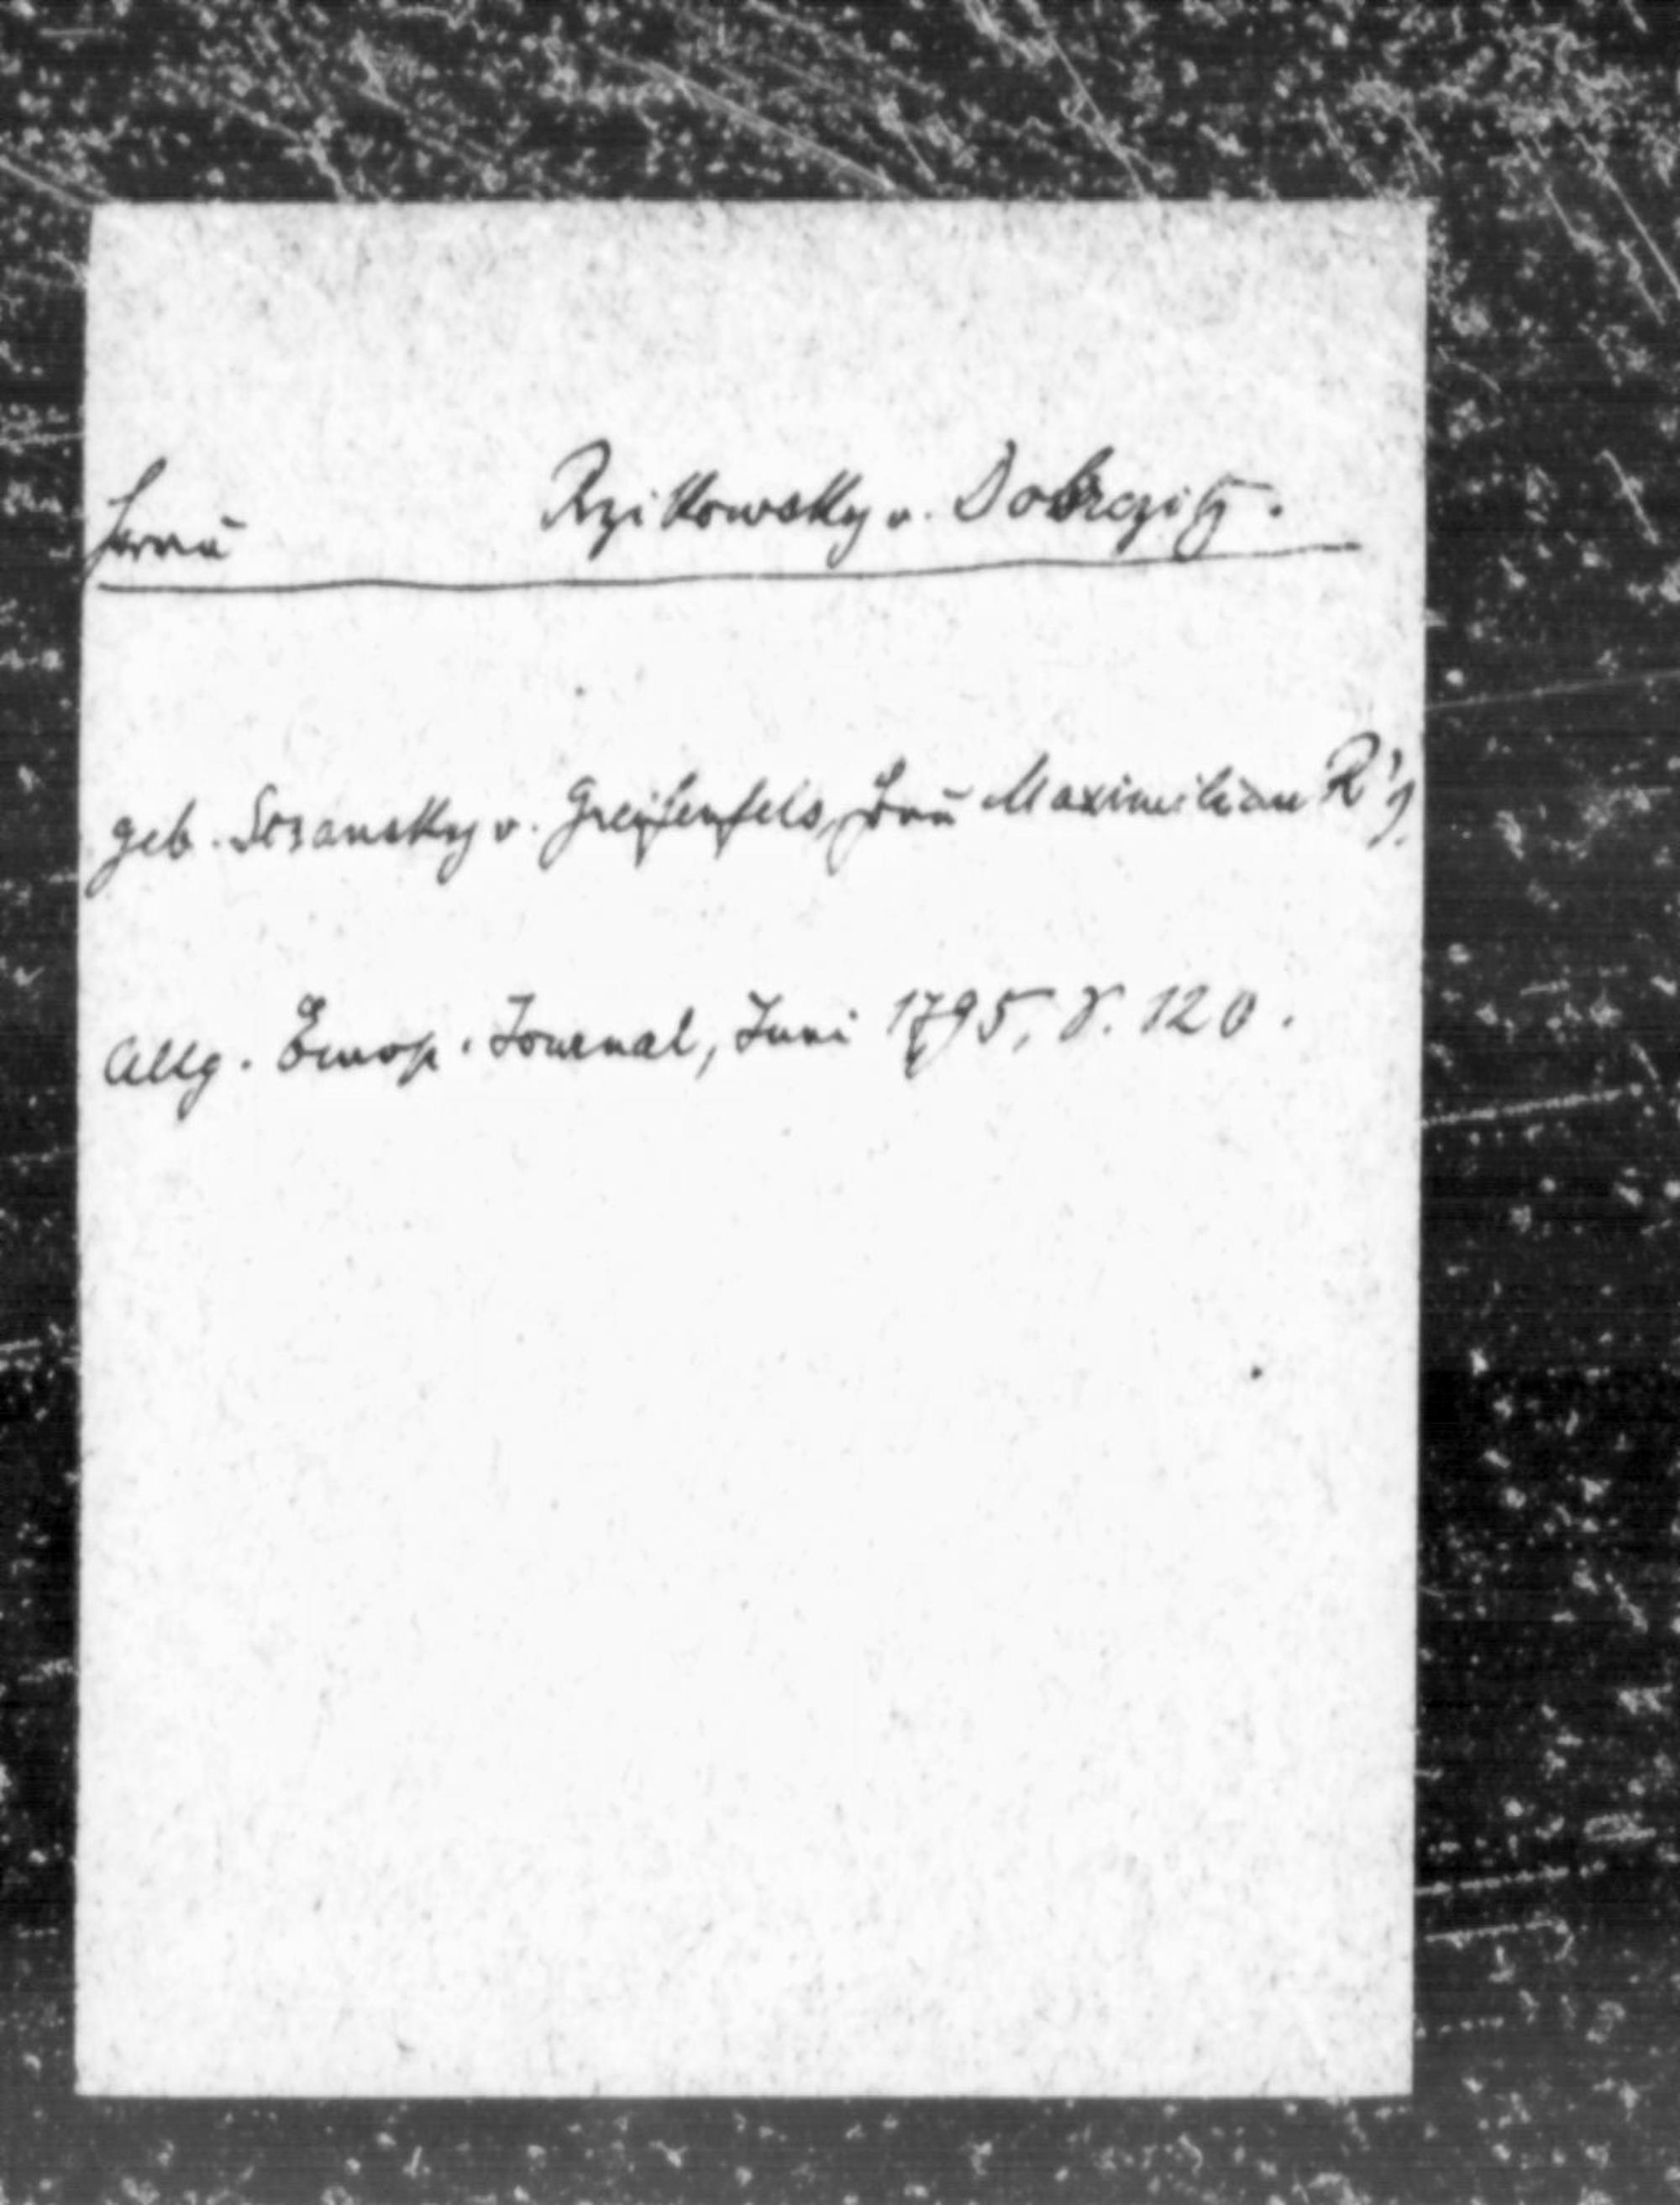 Frau Rzikowsky v. Dobrczitz.
geb. Srsansky v. Greifenfels, Frau Maximilian R's.
Allg. Europ. Journal, Juni 1795, S. 120.